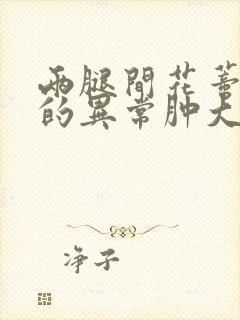 兩腿間花蒂
的異常肿大
净子